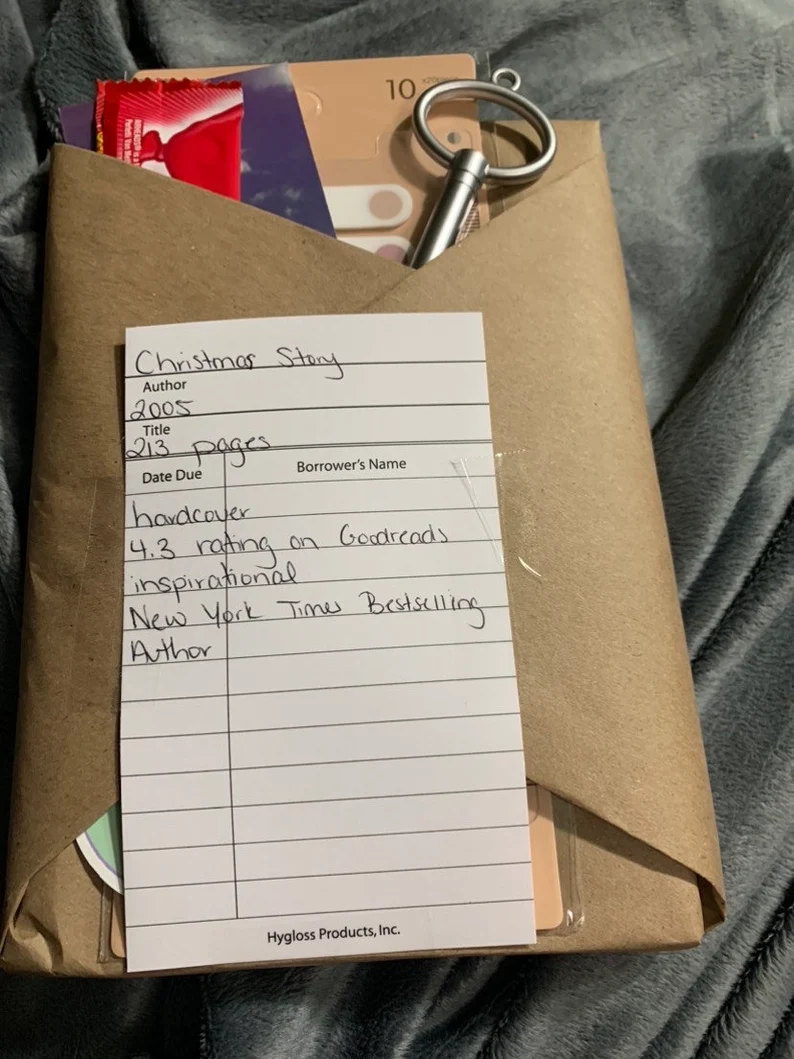 10
Christmas Story
Author
2005
Title
213 pages
Date Due
Borrower's Name
hardcover
4.3 rating on Goodreads
inspirational
New York Times Bestselling
Author
Hygloss Products, Inc.